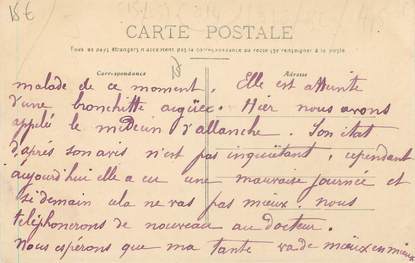 15 €
CARTE POSTALE
Tous les pays étrangers n'acceptent pas la correspondance au recto (se renseigner à la poste)
Correspondance
Adresse
malade de ce moment. Elle est atteinte
d'une bronchitte aigüe. Hier nous avons
appelé le médecin d'allanche. Son état
d'après son avis n'est pas inquiétant, cependant
aujourd'hui elle a eu une mauvaise journée et
si demain cela ne vas pas mieux. nous
téléphonerons de nouveau au docteur.
Nous espérons que ma tante va de mieux en mieux